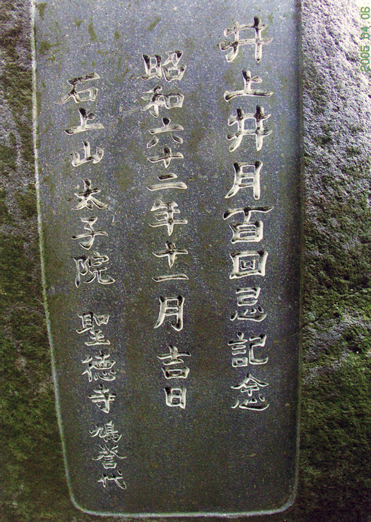 井上井月百回忌記念
昭和六十二年十一月吉日
石上山太子院 聖徳寺鳩誉代
2005.04.08